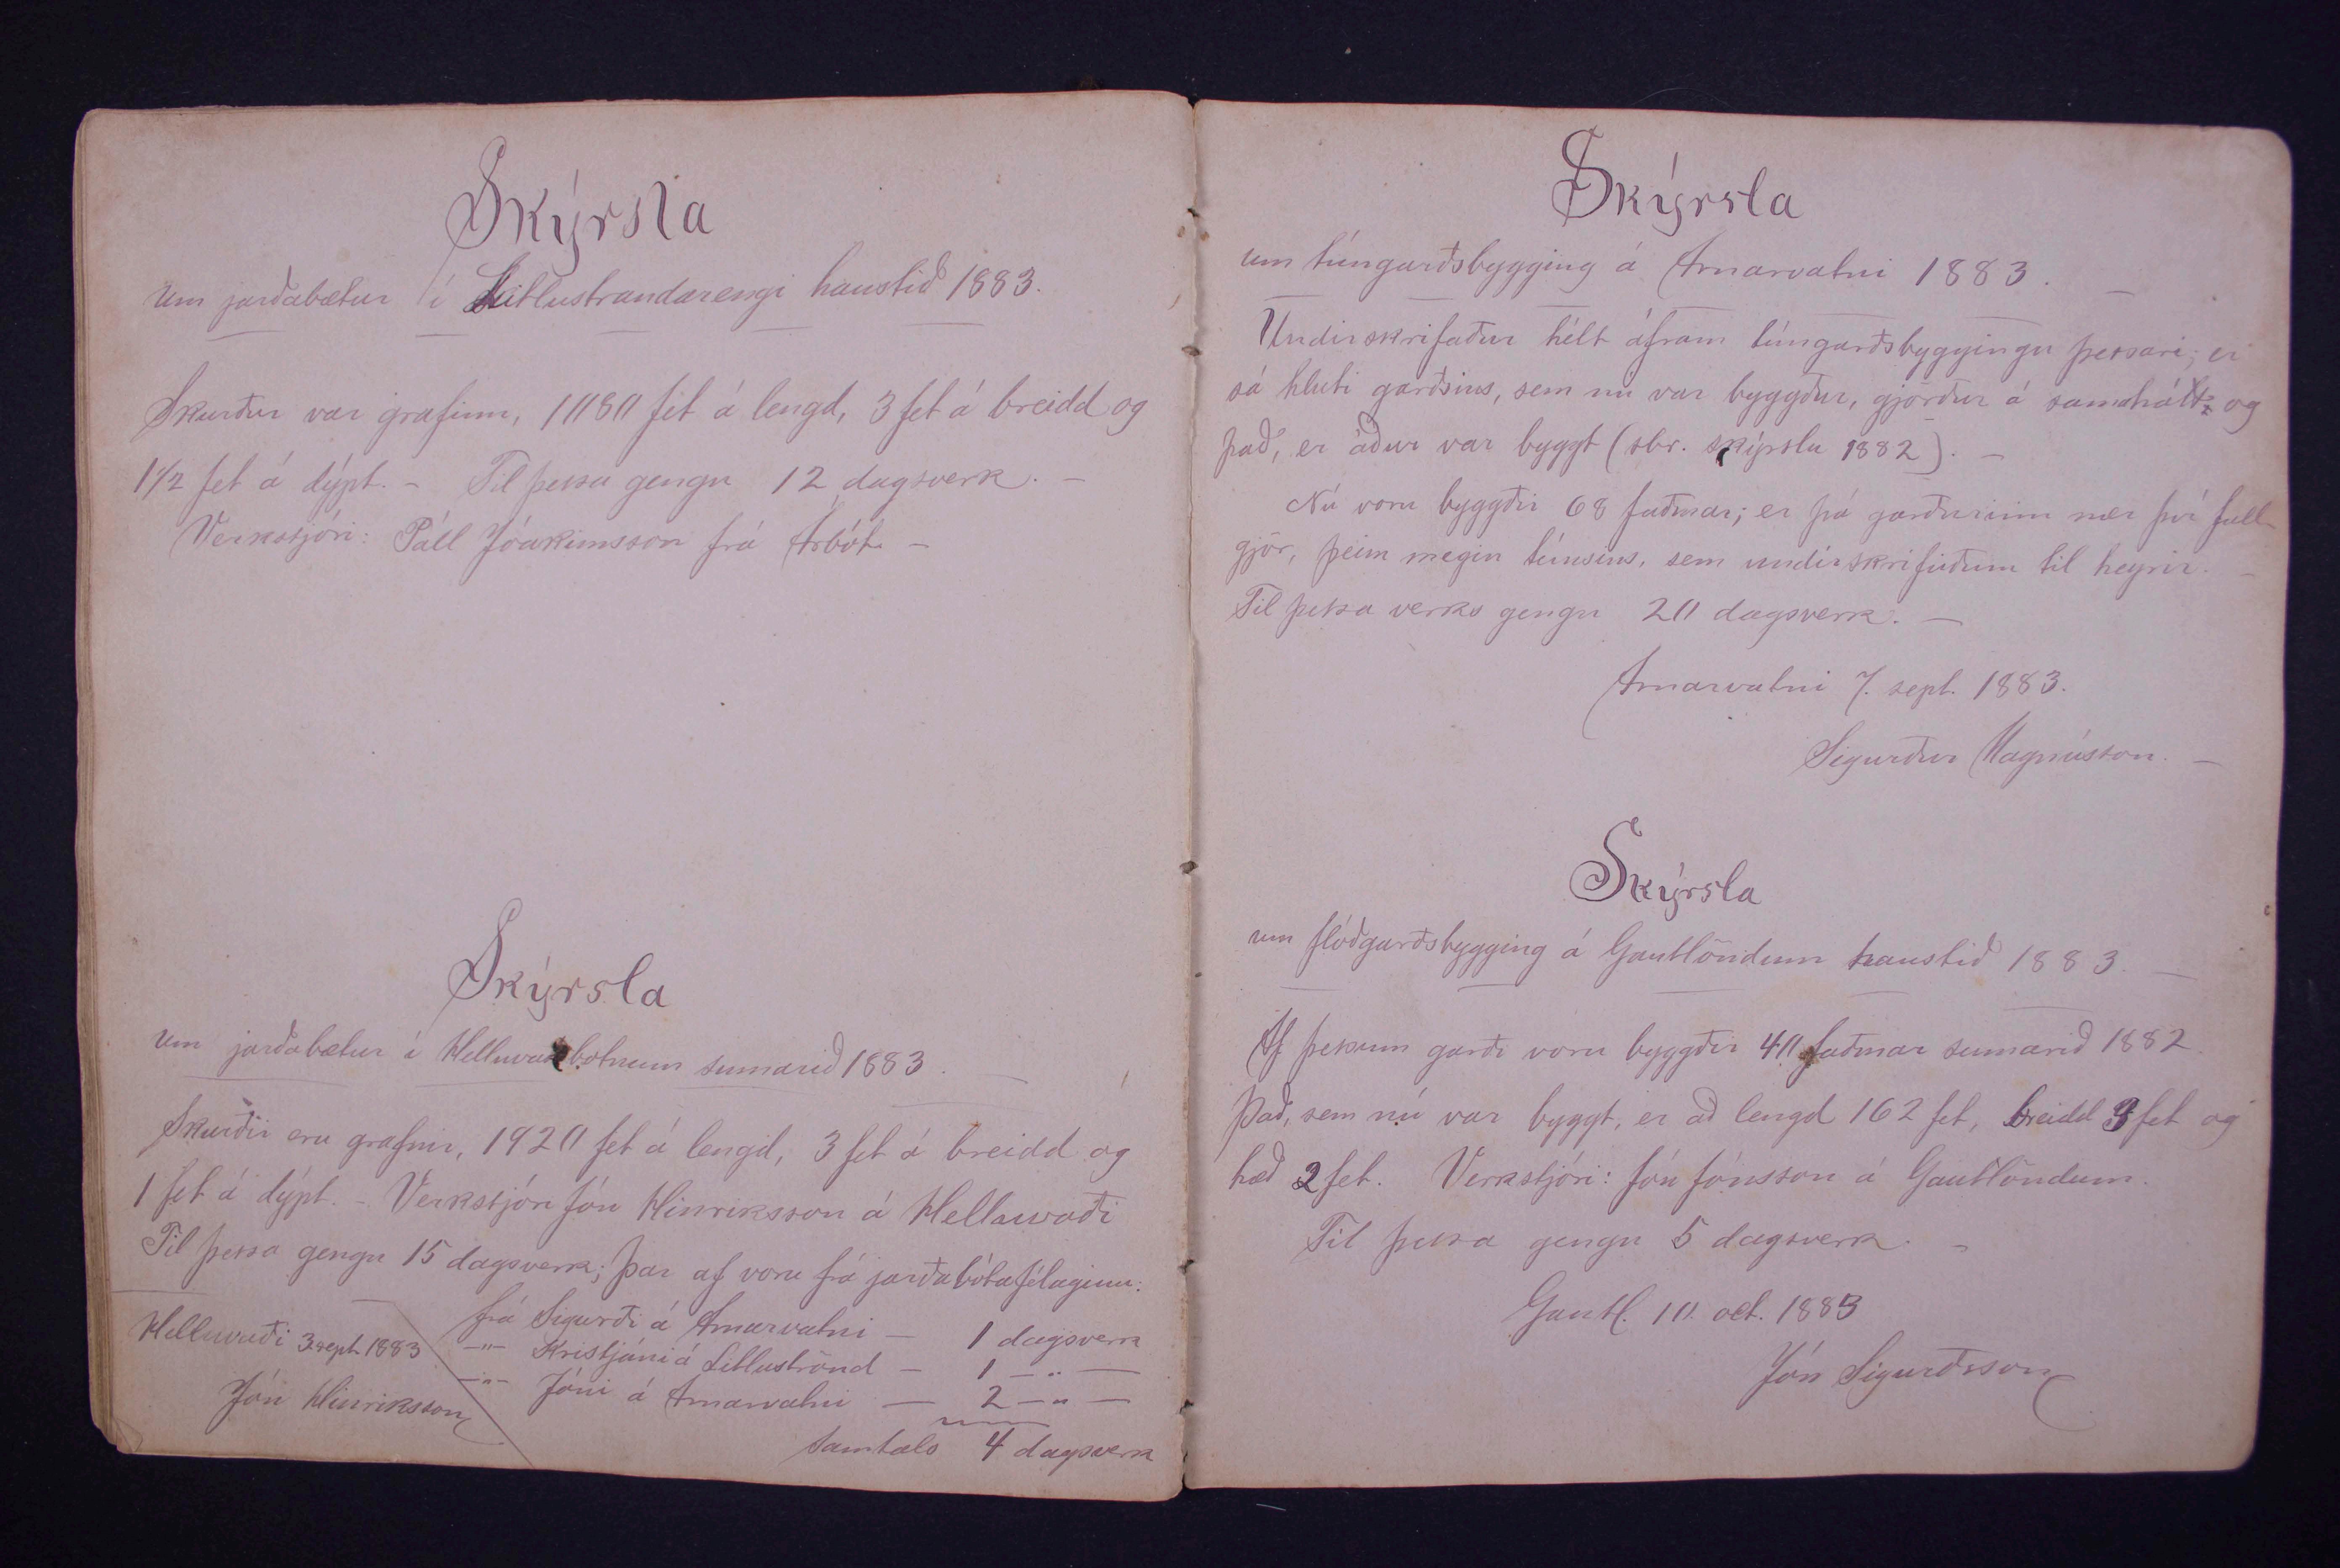 Skýrsla
um jarðabætur í Litlustrandarengi haustið 1883.
Skurður var grafinn, 1080 fet á lengd, 3 fet á breidd og
1 1/2 fet á dýpt. - Til þessa gengu 12 dagsverk. -
Verkstjóri: Páll Jóakimsson frá Árbót -
Skýrsla
um jarðabætur í Helluvaðsbotnum sumarið 1883.
Skurðir eru grafnir, 1920 fet á lengd, 3 fet á breidd og
1 fet á dýpt. - Verkstjóri Jón Hinriksson á Helluvaði
Til þessa gengu 15 dagsverk; þar af voru frá jarðabótafélaginu:
frá Sigurði á Arnarvatni - 1 dagsverk
-"- Kristjáni á Litluströnd - 1 -"-
-"- Jóni á Arnarvatni - 2 -"-
samtals 4 dagsverk
Helluvaði 3. sept. 1883
Jón Hinriksson
Skýrsla
um túngarðsbygging á Arnarvatni 1883. -
Undirskrifaður hélt áfram túngarðsbyggingu þessari; er
sá hluti garðsins, sem nú var byggður, gjörður á sama hátt og
það, er áður var byggt (sbr. skýrslu 1882). -
Nú voru byggðir 68 faðmar; er þá garðurinn nær því full-
gjör, þeim megin túnsins, sem undirskrifuðum til heyrir. -
Til þessa verks gengu 20 dagsverk. -
Arnarvatni 7. sept. 1883.
Sigurður Magnússon. -
Skýrsla
um flóðgarðsbygging á Gautlöndum haustið 1883. -
Af þessum garði voru byggðir 40 faðmar sumarið 1882.
Það, sem nú var byggt, er að lengd 162 fet, breidd 3 fet og
hæð 2 fet. Verkstjóri: Jón Jónsson á Gautlöndum.
Til þessa gengu 5 dagsverk. -
Gautl. 10. oct. 1883
Jón Sigurðsson